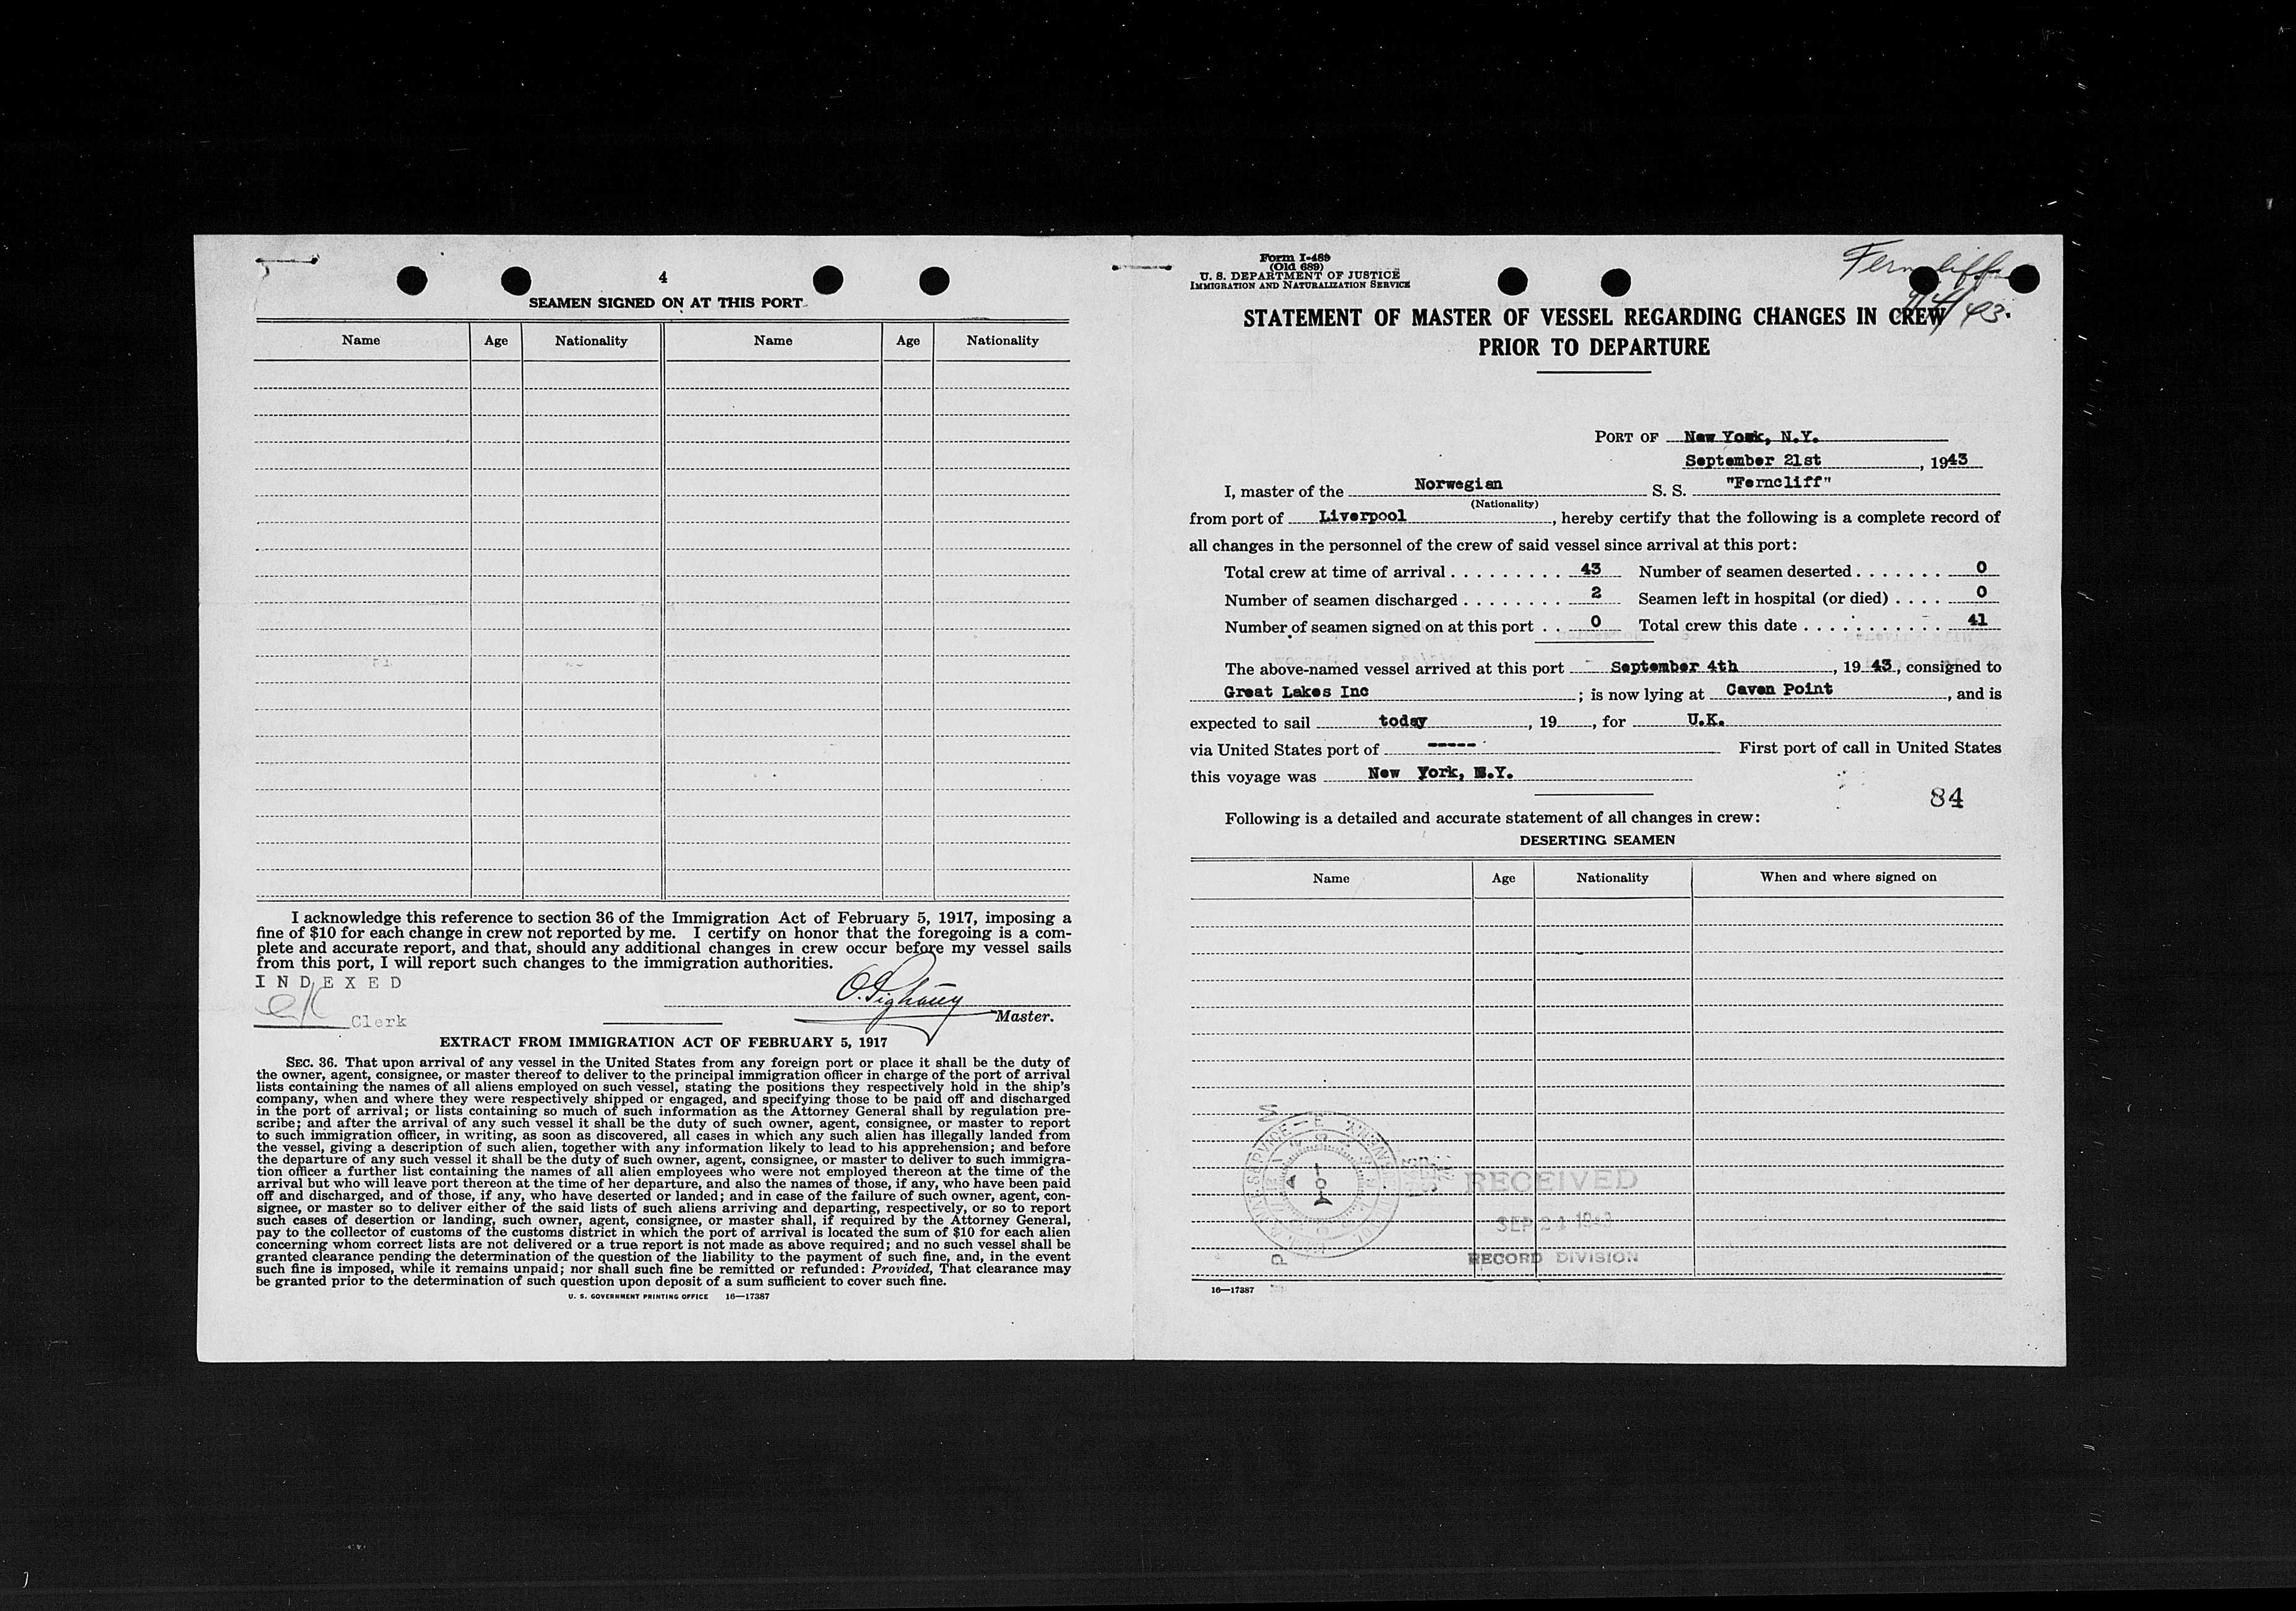 4
SEAMEN SIGNED ON AT THIS PORT
Name Age Nationality Name Age Nationality
I acknowledge this reference to section 36 of the Immigration Act of February 5, 1917, imposing a
fine of $10 for each change in crew not reported by me. I certify on honor that the foregoing is a com-
plete and accurate report, and that, should any additional changes in crew occur before my vessel sails
from this port, I will report such changes to the immigration authorities.
INDEXED
Clerk
Master.
EXTRACT FROM IMMIGRATION ACT OF FEBRUARY 5, 1917
SEC. 36. That upon arrival of any vessel in the United States from any foreign port or place it shall be the duty of
the owner, agent, consignee, or master thereof to deliver to the principal immigration officer in charge of the port of arrival
lists containing the names of all aliens employed on such vessel, stating the positions they respectively hold in the ship's
company, when and where they were respectively shipped or engaged, and specifying those to be paid off and discharged
in the port of arrival; or lists containing so much of such information as the Attorney General shall by regulation pre-
scribe; and after the arrival of any such vessel it shall be the duty of such owner, agent, consignee, or master to report
to such immigration officer, in writing, as soon as discovered, all cases in which any such alien has illegally landed from
the vessel, giving a description of such alien, together with any information likely to lead to his apprehension; and before
the departure of any such vessel it shall be the duty of such owner, agent, consignee, or master to deliver to such immigra-
tion officer a further list containing the names of all alien employees who were not employed thereon at the time of the
arrival but who will leave port thereon at the time of her departure, and also the names of those, if any, who have been paid
off and discharged, and of those, if any, who have deserted or landed; and in case of the failure of such owner, agent, con-
signee, or master so to deliver either of the said lists of such aliens arriving and departing, respectively, or so to report
such cases of desertion or landing, such owner, agent, consignee, or master shall, if required by the Attorney General,
pay to the collector of customs of the customs district in which the port of arrival is located the sum of $10 for each alien
concerning whom correct lists are not delivered or a true report is not made as above required; and no such vessel shall be
granted clearance pending the determination of the question of the liability to the payment of such fine, and, in the event
such fine is imposed, while it remains unpaid; nor shall such fine be remitted or refunded: Provided, That clearance may
be granted prior to the determination of such question upon deposit of a sum sufficient to cover such fine.
U. S. GOVERNMENT PRINTING OFFICE 16—17387
Form I-489
(Old 689)
U. S. DEPARTMENT OF JUSTICE
IMMIGRATION AND NATURALIZATION SERVICE
Ferncliff
STATEMENT OF MASTER OF VESSEL REGARDING CHANGES IN CREW
PRIOR TO DEPARTURE
PORT OF New York, N.Y.
September 21st, 1943
I, master of the Norwegian S. S. "Ferncliff"
(Nationality)
from port of Liverpool, hereby certify that the following is a complete record of
all changes in the personnel of the crew of said vessel since arrival at this port:
Total crew at time of arrival . . . . . . . . . 43 Number of seamen deserted . . . . . . . 0
Number of seamen discharged . . . . . . . . 2 Seamen left in hospital (or died) . . . . 0
Number of seamen signed on at this port . . 0 Total crew this date . . . . . . . . . . . 41
The above-named vessel arrived at this port September 4th, 19 43, consigned to
Great Lakes Inc ; is now lying at Caven Point, and is
expected to sail today, 19, for U.K.
via United States port of ----- First port of call in United States
this voyage was New York, N.Y.
84
Following is a detailed and accurate statement of all changes in crew:
DESERTING SEAMEN
Name Age Nationality When and where signed on
RECEIVED
SEP 24 1943
RECORD DIVISION
16—17387